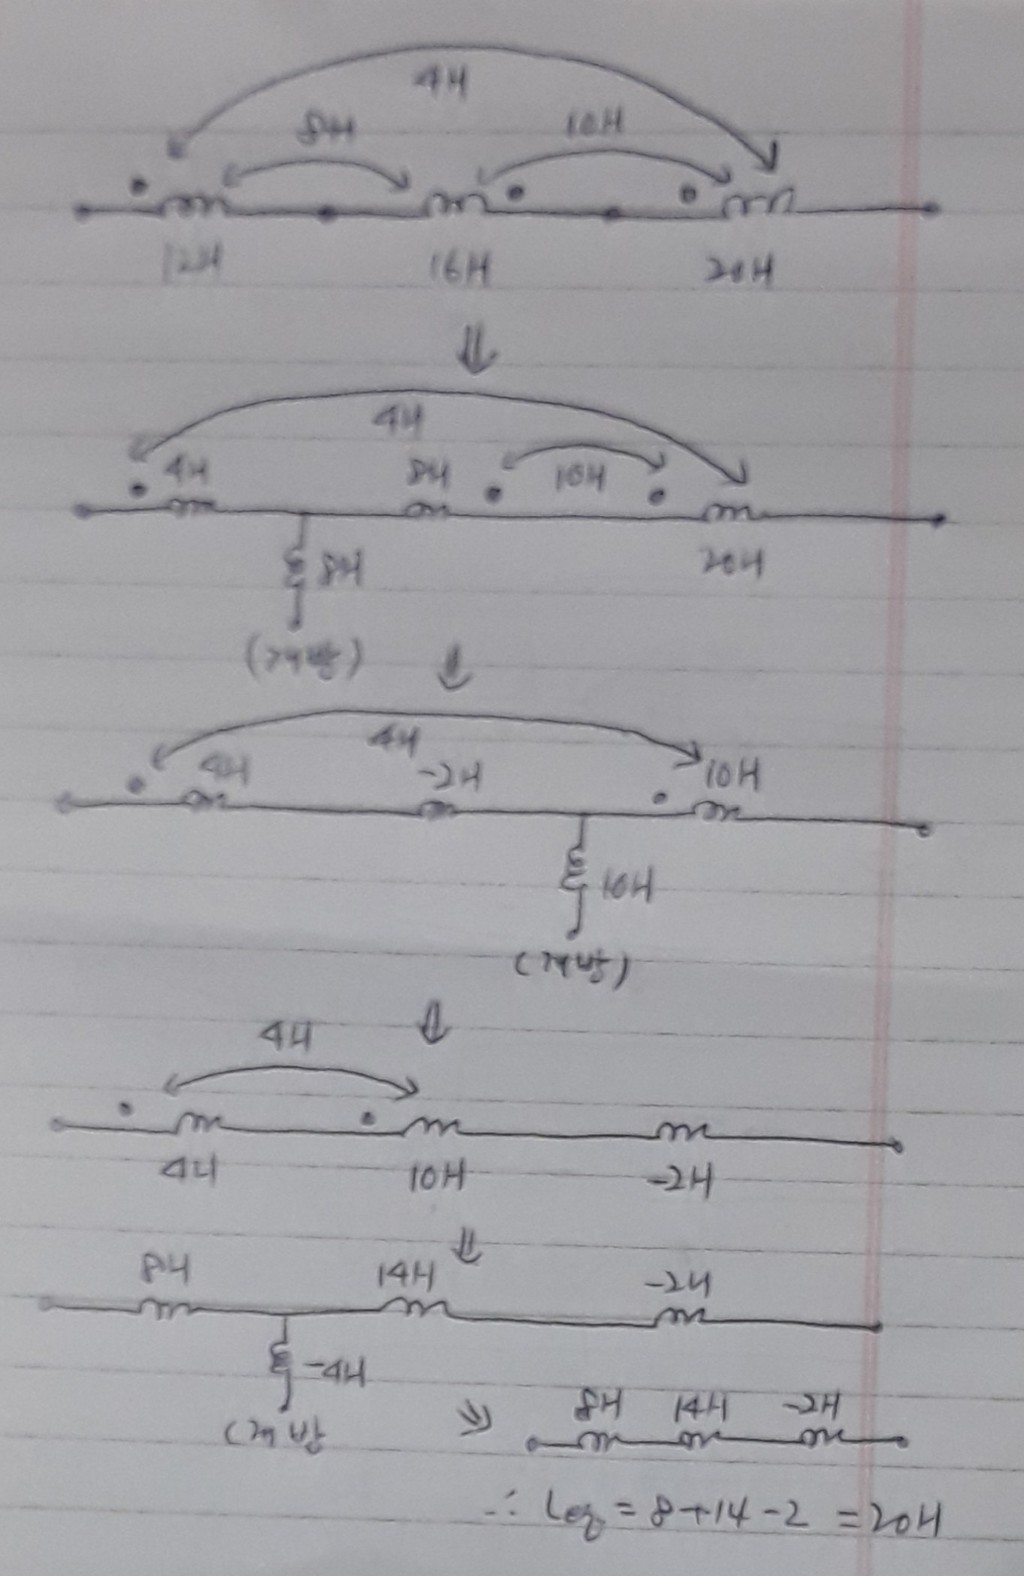 4H
8H 10H
12H 16H 20H
⇓
4H
4H 8H 10H
20H
8H
(개방) ⇓
4H
4H -2H 10H
10H
(개방)
⇓
4H
4H 10H -2H
⇓
8H 14H -2H
-4H
(개방 ⇒ 8H 14H -2H
∴ Leq = 8+14-2 = 20H